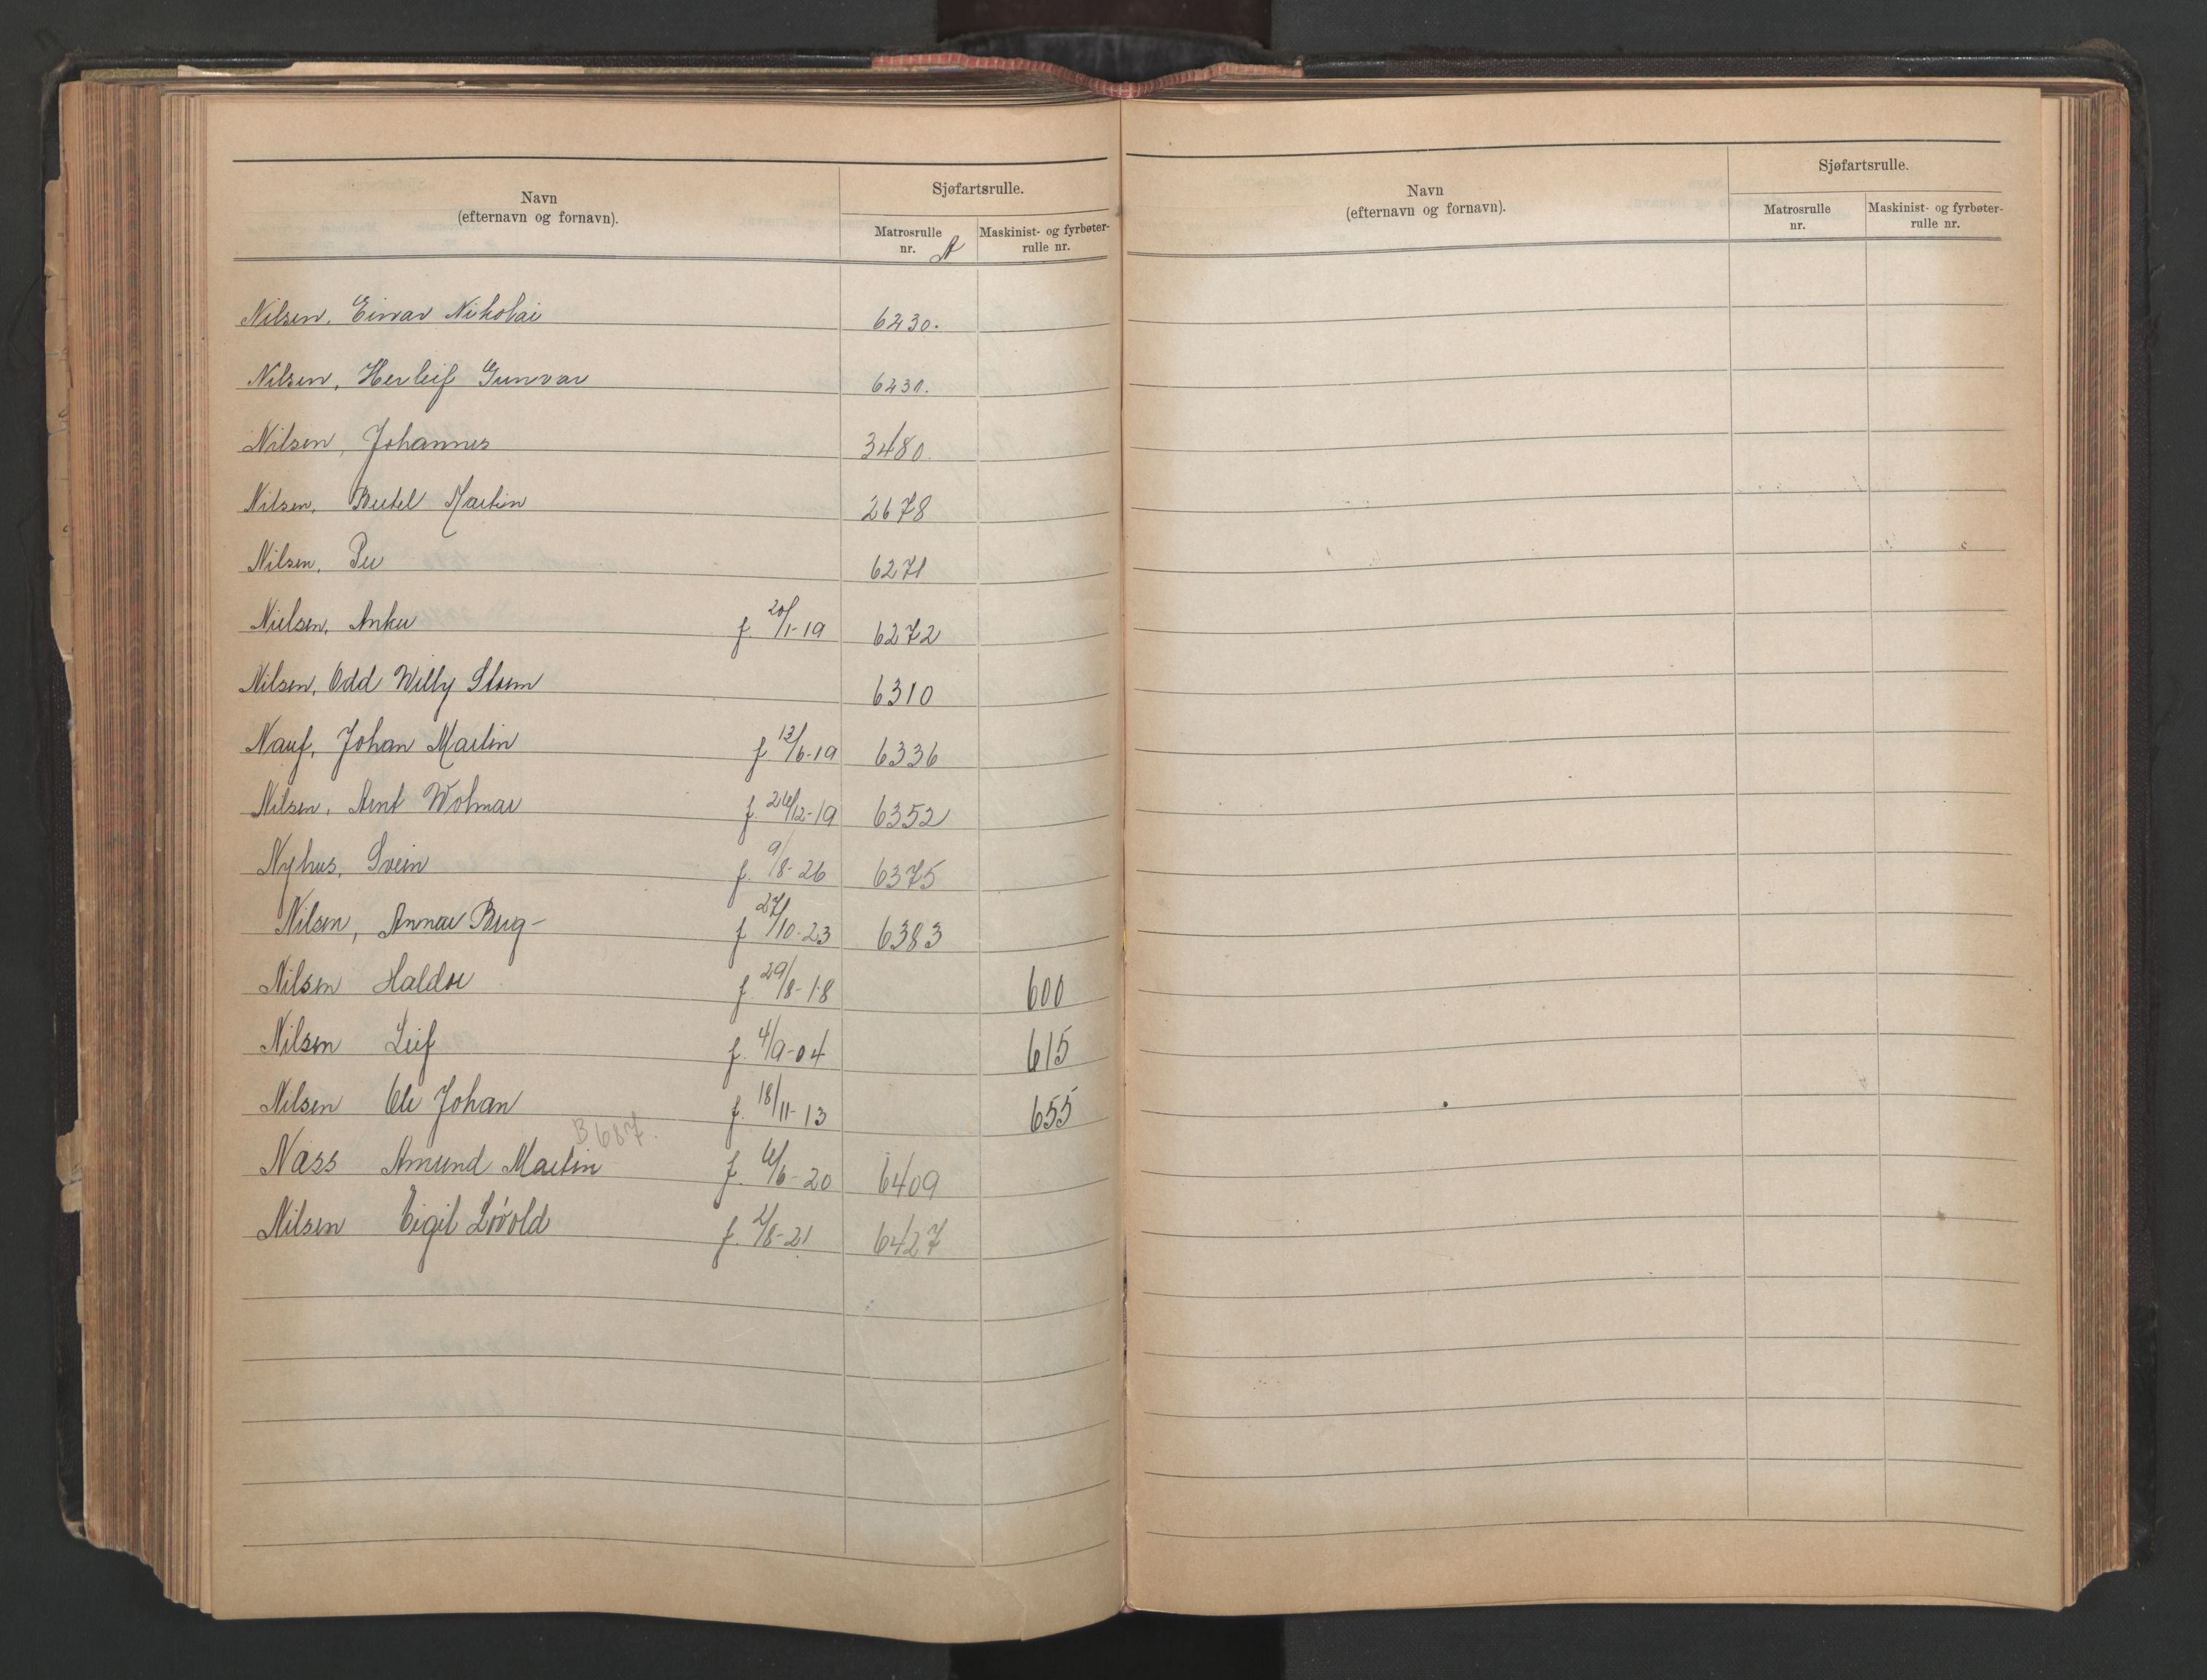 Navn
(efternavn og fornavn).
Sjøfartsrulle.
Matrosrulle
nr. A
Maskinist- og fyrbøter-
rulle nr.
Nilsen, Einar Nikolai 6230.
Nilsen, Herleif Gunvar 6231.
Nilsen, Johannes 3480.
Nilsen, Bertel Martin 2678
Nilsen, Per 6271
Nielsen, Anker f. 20/1-19 6272
Nilsen, Odd Willy Storm 6310
Nauf, Johan Martin f. 13/6-19 6336
Nilsen, Arnt Wolmar f. 26/12-19 6352
Nyhus, Svein f. 9/8-26 6375
Nilsen, Annar Berg- f. 27/10-23 6383
Nilsen Haldor f. 29/8-18 600
Nilsen Leif f. 4/9-04 615
Nilsen Ole Johan f. 18/11-13 655
B 687.
Næss Amund Martin f. 6/6-20 6409
Nilsen Eigil Lövold f. 2/8-21 6427
Navn
(efternavn og fornavn).
Sjøfartsrulle.
Matrosrulle
nr.
Maskinist- og fyrbøter-
rulle nr.